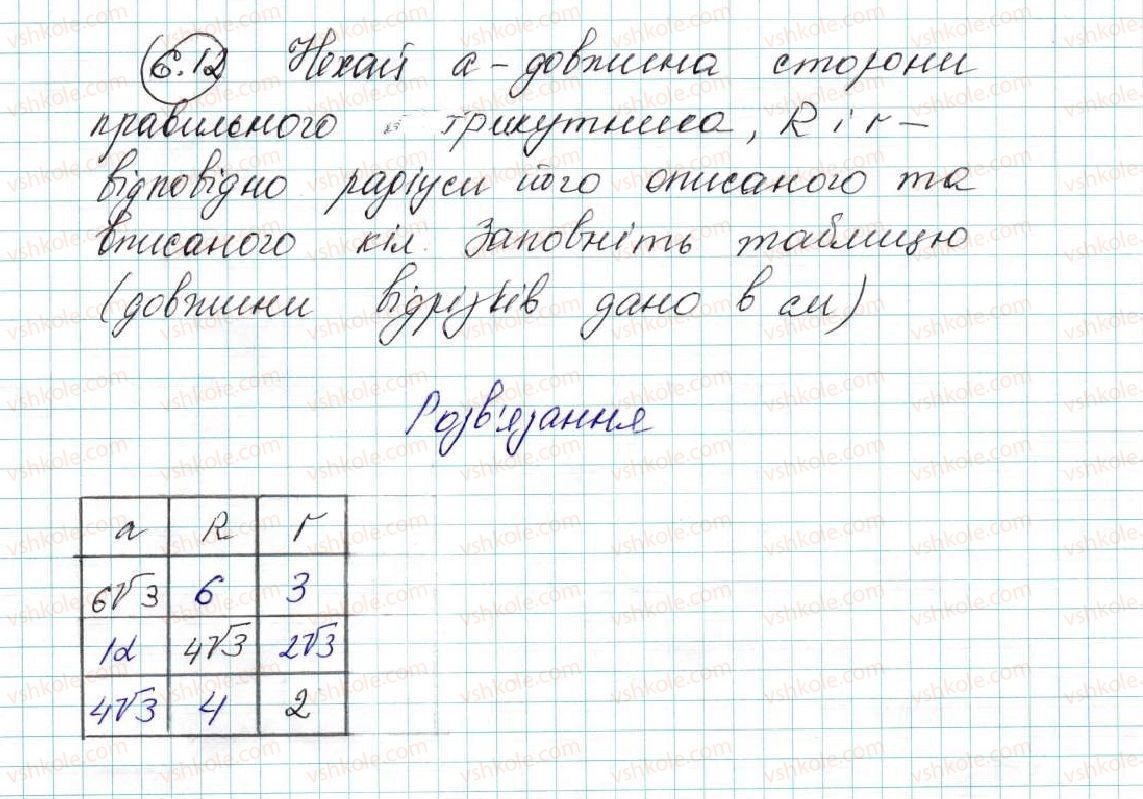 6.12 Нехай a - довжина сторони
правильного трикутника, R і r -
відповідно радіуси його описаного та
вписаного кіл. Заповніть таблицю
(довжини відрізків дано в см)
Розв'язання
a R r
6√3 6 3
12 4√3 2√3
4√3 4 2